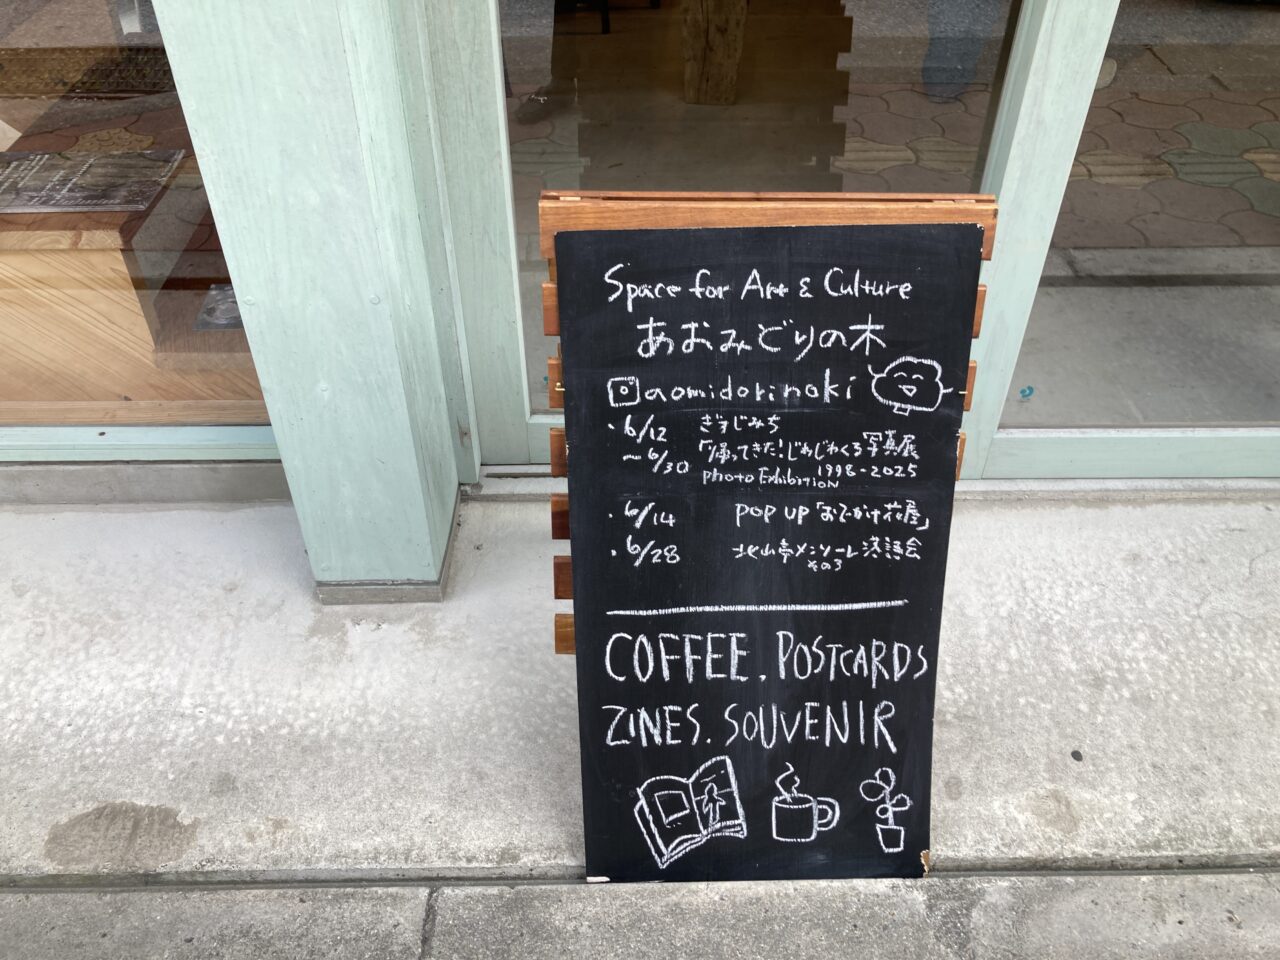 Space for Art & Culture
あおみどりの木
aomidorinoki
・6/12 ぎすじみち
〜6/30 「帰ってきた!じわじわくる写真展
photo Exhibition 1998-2025
・6/14 POP UP「おでかけ花屋」
・6/28 北山亭メンソーレ落語会
その3
COFFEE. POSTCARDS
ZINES. SOUVENIR